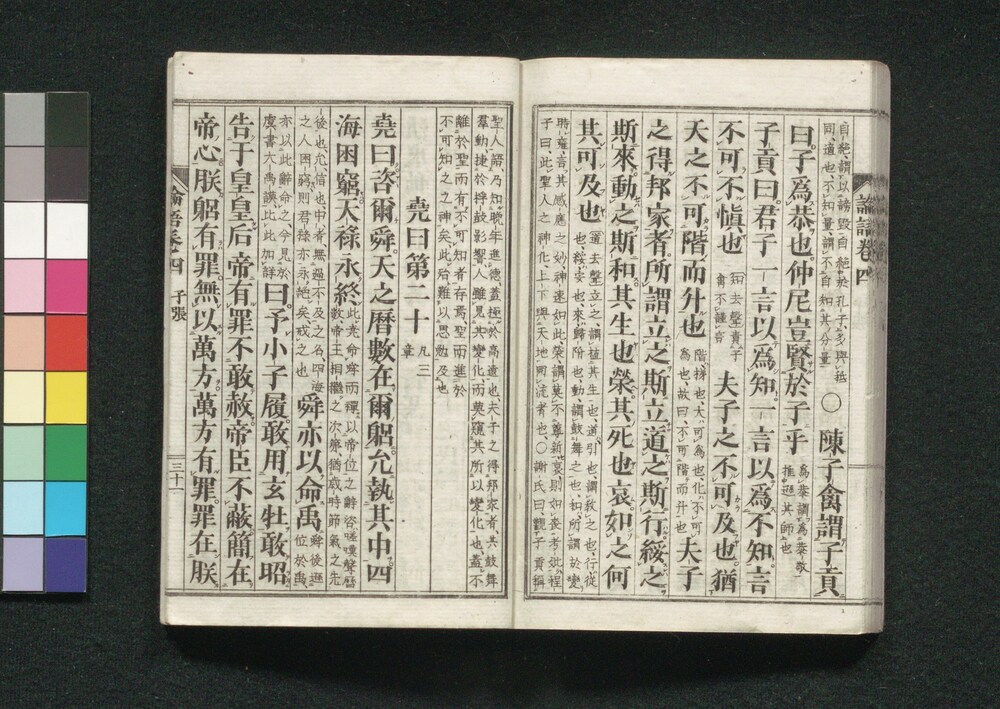 自絶謂以謗毀自絶於孔子多與祇
同適也不知量謂不自知其分量
○陳子禽謂子貢
曰子爲恭也仲尼豈賢於子乎
爲恭謂爲恭敬
推遜其師也
子貢曰君子一言以爲知一言以爲不知言
不可不愼也
知去聲責子
禽不謹言
夫子之不可及也猶
天之不可階而升也
階梯也大可爲也化不可
爲也故曰不可階而升也
夫子
之得邦家者所謂立之斯立道之斯行綏之
斯來動之斯和其生也榮其死也哀如之何
其可及也
道去聲立之謂植其生也道引也謂敎之也行從
也綏安也來歸附也動謂鼓舞之也和所謂於變
時雍言其感應之妙神速如此榮謂莫不尊親哀則如喪考妣程
子曰此聖人之神化上下與天地同流者也○謝氏曰觀子貢稱
聖人語乃知晩年進德蓋極於高遠也夫子之得邦家者其鼓舞
羣動捷於桴鼓影響人雖見其變化而莫窺其所以變化也蓋不
離於聖而有不可知者存焉聖而進於
不可知之之神矣此殆難以思勉及也
堯曰第二十
凡三
章
堯曰咨爾舜天之曆數在爾躬允執其中四
海困窮天祿永終
此堯命舜而禪以帝位之辭咨嗟嘆聲曆
數帝王相繼之次第猶歲時節氣之先
後也允信也中者無過不及之名四海
之人困窮則君祿亦永絶矣戒之也
舜亦以命禹
舜後遜
位於禹
亦以此辭命之今見於
虞書大禹謨比此加詳
曰予小子履敢用玄牡敢昭
告于皇皇后帝有罪不敢赦帝臣不蔽簡在
帝心朕躬有罪無以萬方萬方有罪罪在朕
論語卷四
論語卷四
子張
三十一